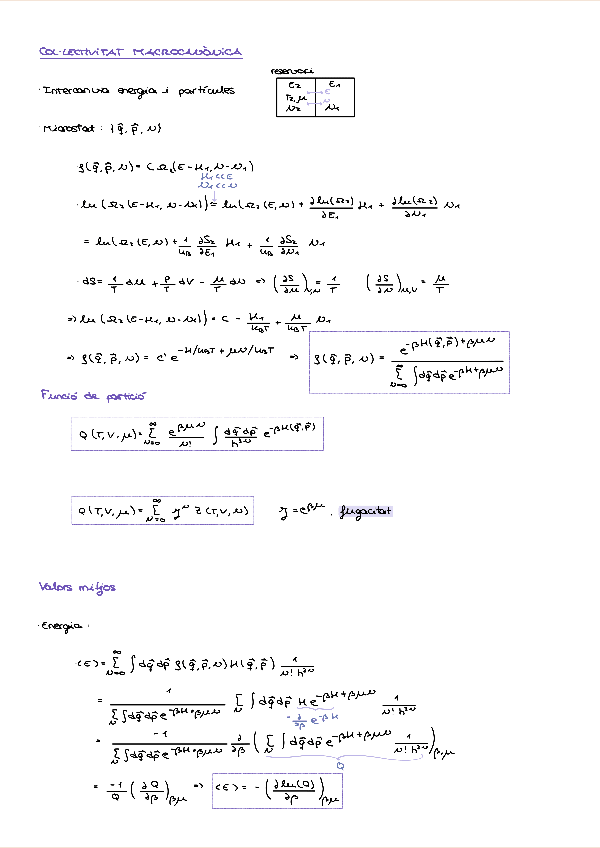 COL·LECTIVITAT MACROCANÒNICA
reservori
E₂ E₁
T₂,μ E
N₂ N N₁
· Intercanvia energia i partícules
· Microestat: {q̄, p̄, N}
ρ(q̄, p̄, N) = C Ω₂(E-H₁, N-N₁)
H₁<<E
N₁<<N
· ln(Ω₂(E-H₁, N-N₁)) ≃ ln(Ω₂(E,N)) + ∂ln(Ω₂)/∂E₁ H₁ + ∂ln(Ω₂)/∂N₁ N₁
= ln(Ω₂(E,N)) + 1/k_B ∂S₂/∂E₁ H₁ + 1/k_B ∂S₂/∂N₁ N₁
· dS = 1/T dU + P/T dV - μ/T dN ⇒ (∂S/∂U)_V,N = 1/T (∂S/∂N)_U,V = μ/T
⇒ ln(Ω₂(E-H₁, N-N₁)) = C - H₁/k_BT + μ/k_BT N₁
⇒ ρ(q̄, p̄, N) = C' e^(-H/k_BT + μN/k_BT) ⇒ ρ(q̄, p̄, N) = e^(-βH(q̄,p̄)+βμN) / Σ_{N=0}^∞ ∫dq̄dp̄ e^(-βH+βμN)
Funció de partició
Q(T,V,μ) = Σ_{N=0}^∞ e^(βμN)/N! ∫ dq̄dp̄/h^(3N) e^(-βH(q̄,p̄))
Q(T,V,μ) = Σ_{N=0}^∞ z^N Z(T,V,N) z = e^(βμ), fugacitat
Valors mitjos
· Energia:
⟨E⟩ = Σ_{N=0}^∞ ∫dq̄dp̄ ρ(q̄,p̄,N) H(q̄,p̄) 1/(N! h^(3N))
= 1/(Σ_N ∫dq̄dp̄ e^(-βH+βμN)) Σ_N ∫dq̄dp̄ H e^(-βH+βμN) 1/(N! h^(3N))
-∂/∂β e^(-βH)
= -1/(Σ_N ∫dq̄dp̄ e^(-βH+βμN)) ∂/∂β (Σ_N ∫dq̄dp̄ e^(-βH+βμN) 1/(N! h^(3N)))_β,μ
Q
= -1/Q (∂Q/∂β)_βμ ⇒ ⟨E⟩ = -(∂ln(Q)/∂β)_βμ